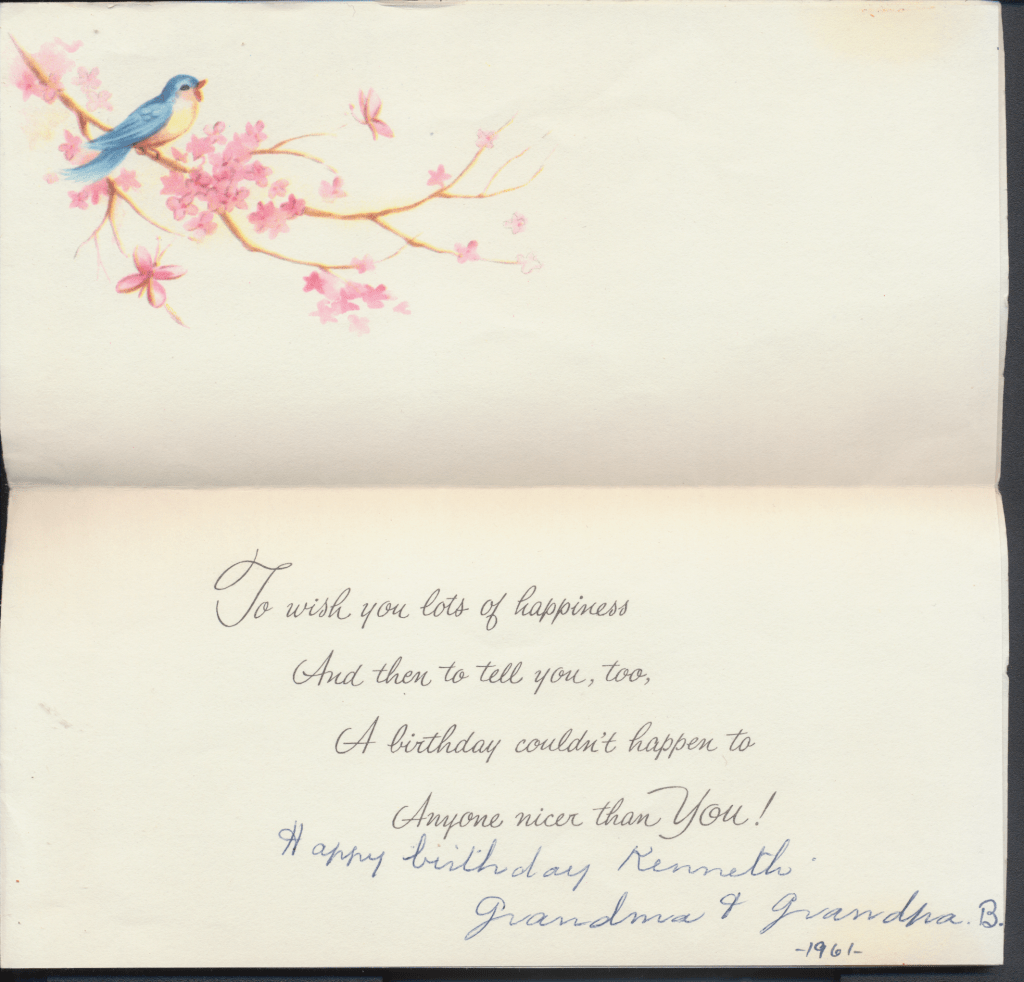 To wish you lots of happiness
And then to tell you, too,
A birthday couldn't happen to
Anyone nicer than You!
Happy birthday Kenneth
Grandma & Grandpa. B.
-1961-